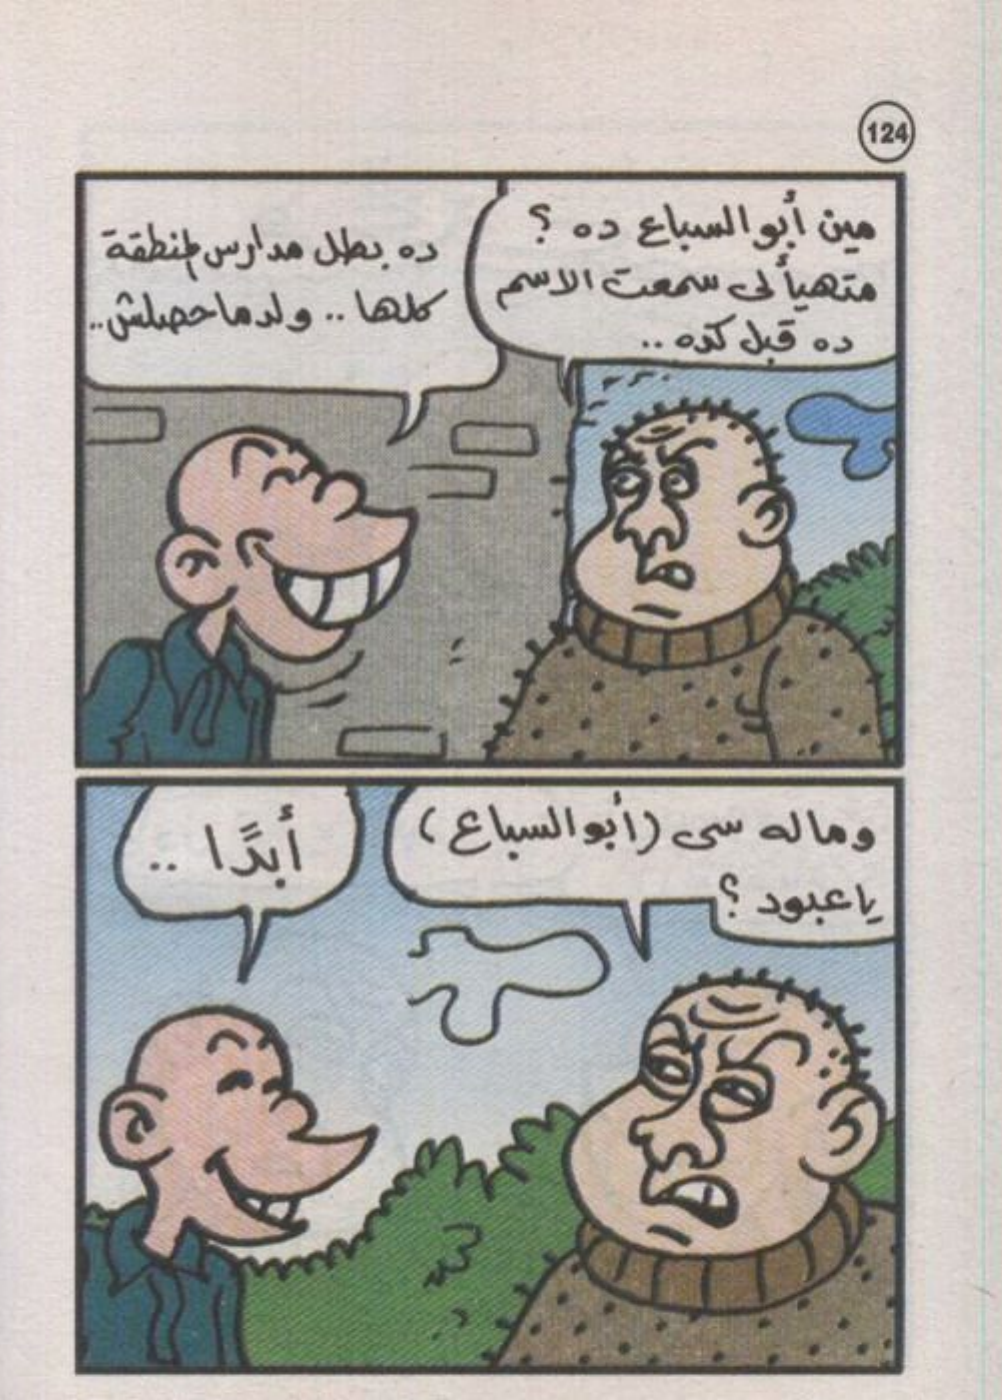 124
مين أبو السباع ده ؟
متهيألى سمعت الاسم
ده قبل كده ..
ده بطل مدارس المنطقة
كلها .. ولد ماحصلش ..
وماله سى (أبو السباع)
ياعبود ؟
أبدًا ..